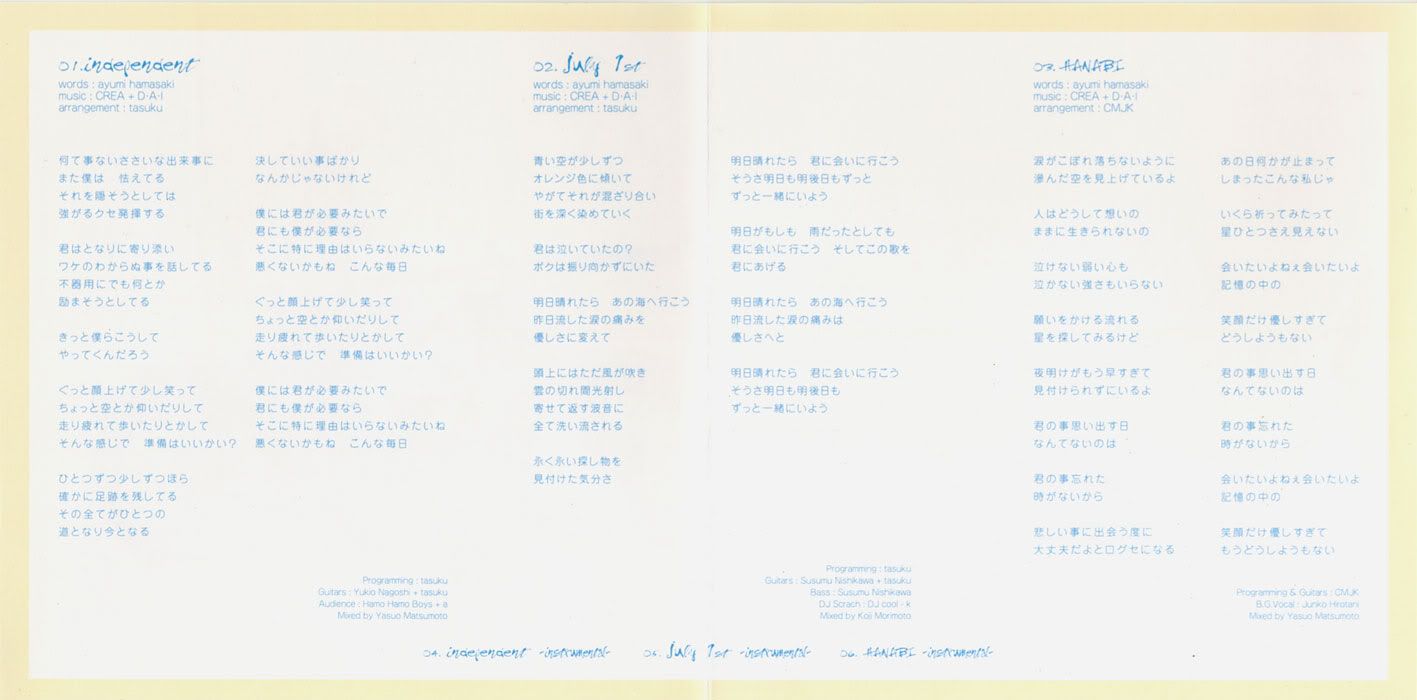 01.independent
words : ayumi hamasaki
music : CREA + D・A・I
arrangement : tasuku
何て事ないささいな出来事に
また僕は　怯えてる
それを隠そうとしては
強がるクセ発揮する
君はとなりに寄り添い
ワケのわからぬ事を話してる
不器用にでも何とか
励まそうとしてる
きっと僕らこうして
やってくんだろう
ぐっと顔上げて少し笑って
ちょっと空とか仰いだりして
走り疲れて歩いたりとかして
そんな感じで　準備はいいかい？
ひとつずつ少しずつほら
確かに足跡を残してる
その全てがひとつの
道となり今となる
決していい事ばかり
なんかじゃないけれど
僕には君が必要みたいで
君にも僕が必要なら
そこに特に理由はいらないみたいね
悪くないかもね　こんな毎日
ぐっと顔上げて少し笑って
ちょっと空とか仰いだりして
走り疲れて歩いたりとかして
そんな感じで　準備はいいかい？
僕には君が必要みたいで
君にも僕が必要なら
そこに特に理由はいらないみたいね
悪くないかもね　こんな毎日
Programming : tasuku
Guitars : Yukio Nagoshi + tasuku
Audience : Hamo Hamo Boys + a
Mixed by Yasuo Matsumoto
02. July 1st
words : ayumi hamasaki
music : CREA + D・A・I
arrangement : tasuku
青い空が少しずつ
オレンジ色に傾いて
やがてそれが混ざり合い
街を深く染めていく
君は泣いていたの？
ボクは振り向かずにいた
明日晴れたら　あの海へ行こう
昨日流した涙の痛みを
優しさに変えて
頭上にはただ風が吹き
雲の切れ間光射し
寄せて返す波音に
全て洗い流される
永く永い探し物を
見付けた気分さ
明日晴れたら　君に会いに行こう
そうさ明日も明後日もずっと
ずっと一緒にいよう
明日がもしも　雨だったとしても
君に会いに行こう　そしてこの歌を
君にあげる
明日晴れたら　あの海へ行こう
昨日流した涙の痛みは
優しさへと
明日晴れたら　君に会いに行こう
そうさ明日も明後日も
ずっと一緒にいよう
Programming : tasuku
Guitars : Susumu Nishikawa + tasuku
Bass : Susumu Nishikawa
DJ Scrach : DJ cool - k
Mixed by Koji Morimoto
03. HANABI
words : ayumi hamasaki
music : CREA + D・A・I
arrangement : CMJK
涙がこぼれ落ちないように
滲んだ空を見上げているよ
人はどうして想いの
ままに生きられないの
泣けない弱い心も
泣かない強さもいらない
願いをかける流れる
星を探してみるけど
夜明けがもう早すぎて
見付けられずにいるよ
君の事思い出す日
なんてないのは
君の事忘れた
時がないから
悲しい事に出会う度に
大丈夫だよと口グセになる
あの日何かが止まって
しまったこんな私じゃ
いくら祈ってみたって
星ひとつさえ見えない
会いたいよねぇ会いたいよ
記憶の中の
笑顔だけ優しすぎて
どうしようもない
君の事思い出す日
なんてないのは
君の事忘れた
時がないから
会いたいよねぇ会いたいよ
記憶の中の
笑顔だけ優しすぎて
もうどうしようもない
Programming & Guitars : CMJK
B.G.Vocal : Junko Hirotani
Mixed by Yasuo Matsumoto
04. independent -instrumental-
05. July 1st -instrumental-
06. HANABI -instrumental-